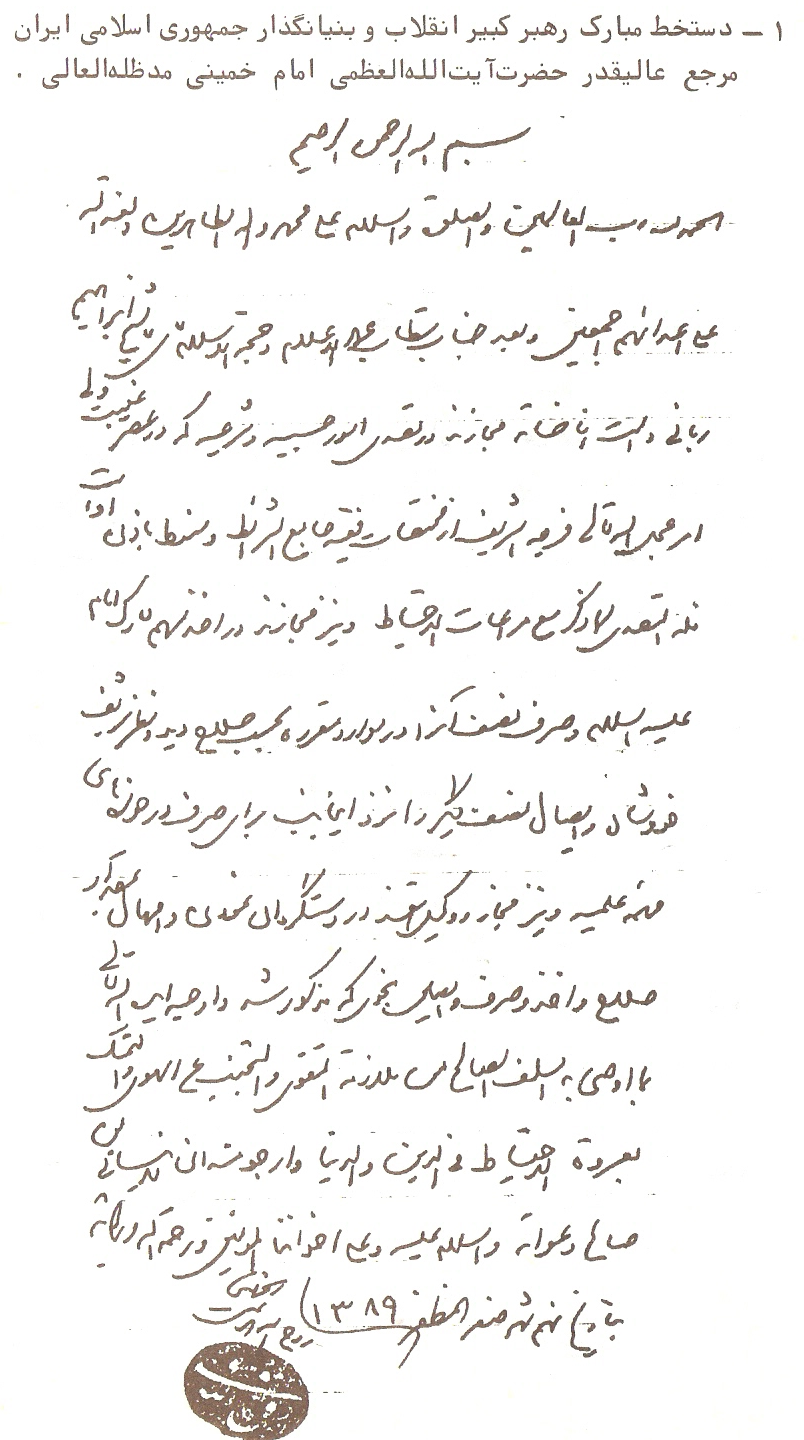 ۱ – دستخط مبارک رهبر کبیر انقلاب و بنیانگذار جمهوری اسلامی ایران
مرجع عالیقدر حضرت‌آیت‌الله‌العظمی امام خمینی مدظله‌العالی .
بسم الله الرحمن الرحیم
الحمد لله رب العالمین والصلوة والسلام علی محمد و اله الطاهرین ولعنة الله
علی اعدائهم اجمعین وبعد جناب مستطاب عماد الاعلام و حجة الاسلام آقای شیخ ابراهیم
ربانی دامت افاضاته مجازند در تصدی امور حسبیه و شرعیه که در عصر غیبت ولی
امر عجل الله تعالی فرجه الشریف از مختصات فقیه جامع الشرائط و منوط باذن اوست
فله التصدی لما ذکر مع مراعات الاحتیاط و نیز مجازند در اخذ سهم مبارک امام
علیه السلام و صرف نصف آنرا در موارد مقرره بحسب صلاح دید و نظر شریف
خودشان و ایصال نصف دیگر را نزد اینجانب برای صرف در حوزه‌های
مهمه علمیه و نیز مجاز و وکیل هستند در دستگردان نمودن و امهال بمقدار
صلاح و اخذ و صرف و ایصال بنحوی که مذکور شد و اوصیه ایده الله تعالی
بما اوصی به السلف الصالح من ملازمة التقوی والتجنب عن الهوی والتمسک
بعروة الاحتیاط فی الدین والدنیا وارجو منه ان لاینسانی من
صالح دعواته والسلام علیه وعلی اخواننا المؤمنین ورحمة الله وبرکاته
بتاریخ نهم شهر صفر المظفر ۱۳۸۹
روح الله الموسوی الخمینی